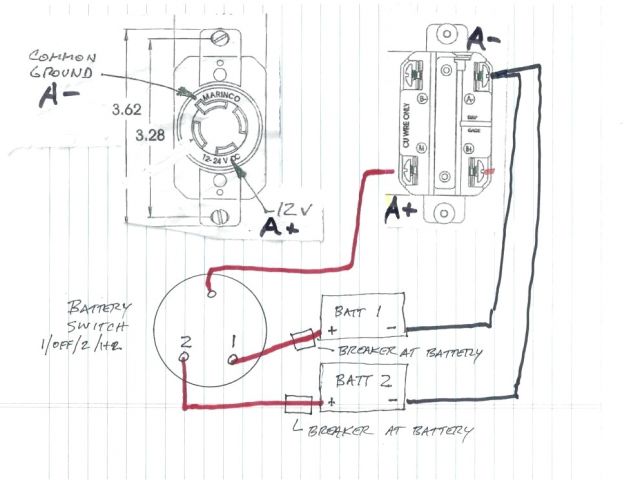 COMMON
GROUND
A-
3.62
3.28
MARINCO
12-24 V DC
-12V
A+
A-
CU WIRE ONLY
B-
A-
M
B+
GAGE
A+
BATTERY
SWITCH
1/OFF/2/1+2
2
1
BATT 1
+
-
BREAKER AT BATTERY
BATT 2
+
-
BREAKER AT BATTERY